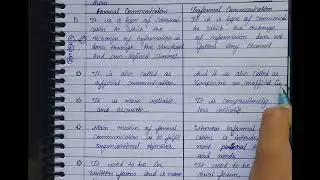 them
Formal Communication
Informal Communication
1) It is a type of Communi-
cation in which the
exchange of information is
done through the structured
and pre-defined channel.
It is a type of communica
in which the exchange
of information does not
follow any channel
It is also called as
official communication.
And it is also called as
Grapevine an unofficial Co
It is more reliable
and accurate.
It is comparatively
less reliable.
Main motive of formal
Communication is to fulfil
organizational objective.
Whereas informal
cation is
meet personal
and needs.
It used to be in
written form and is more
It used to be in
oral form,